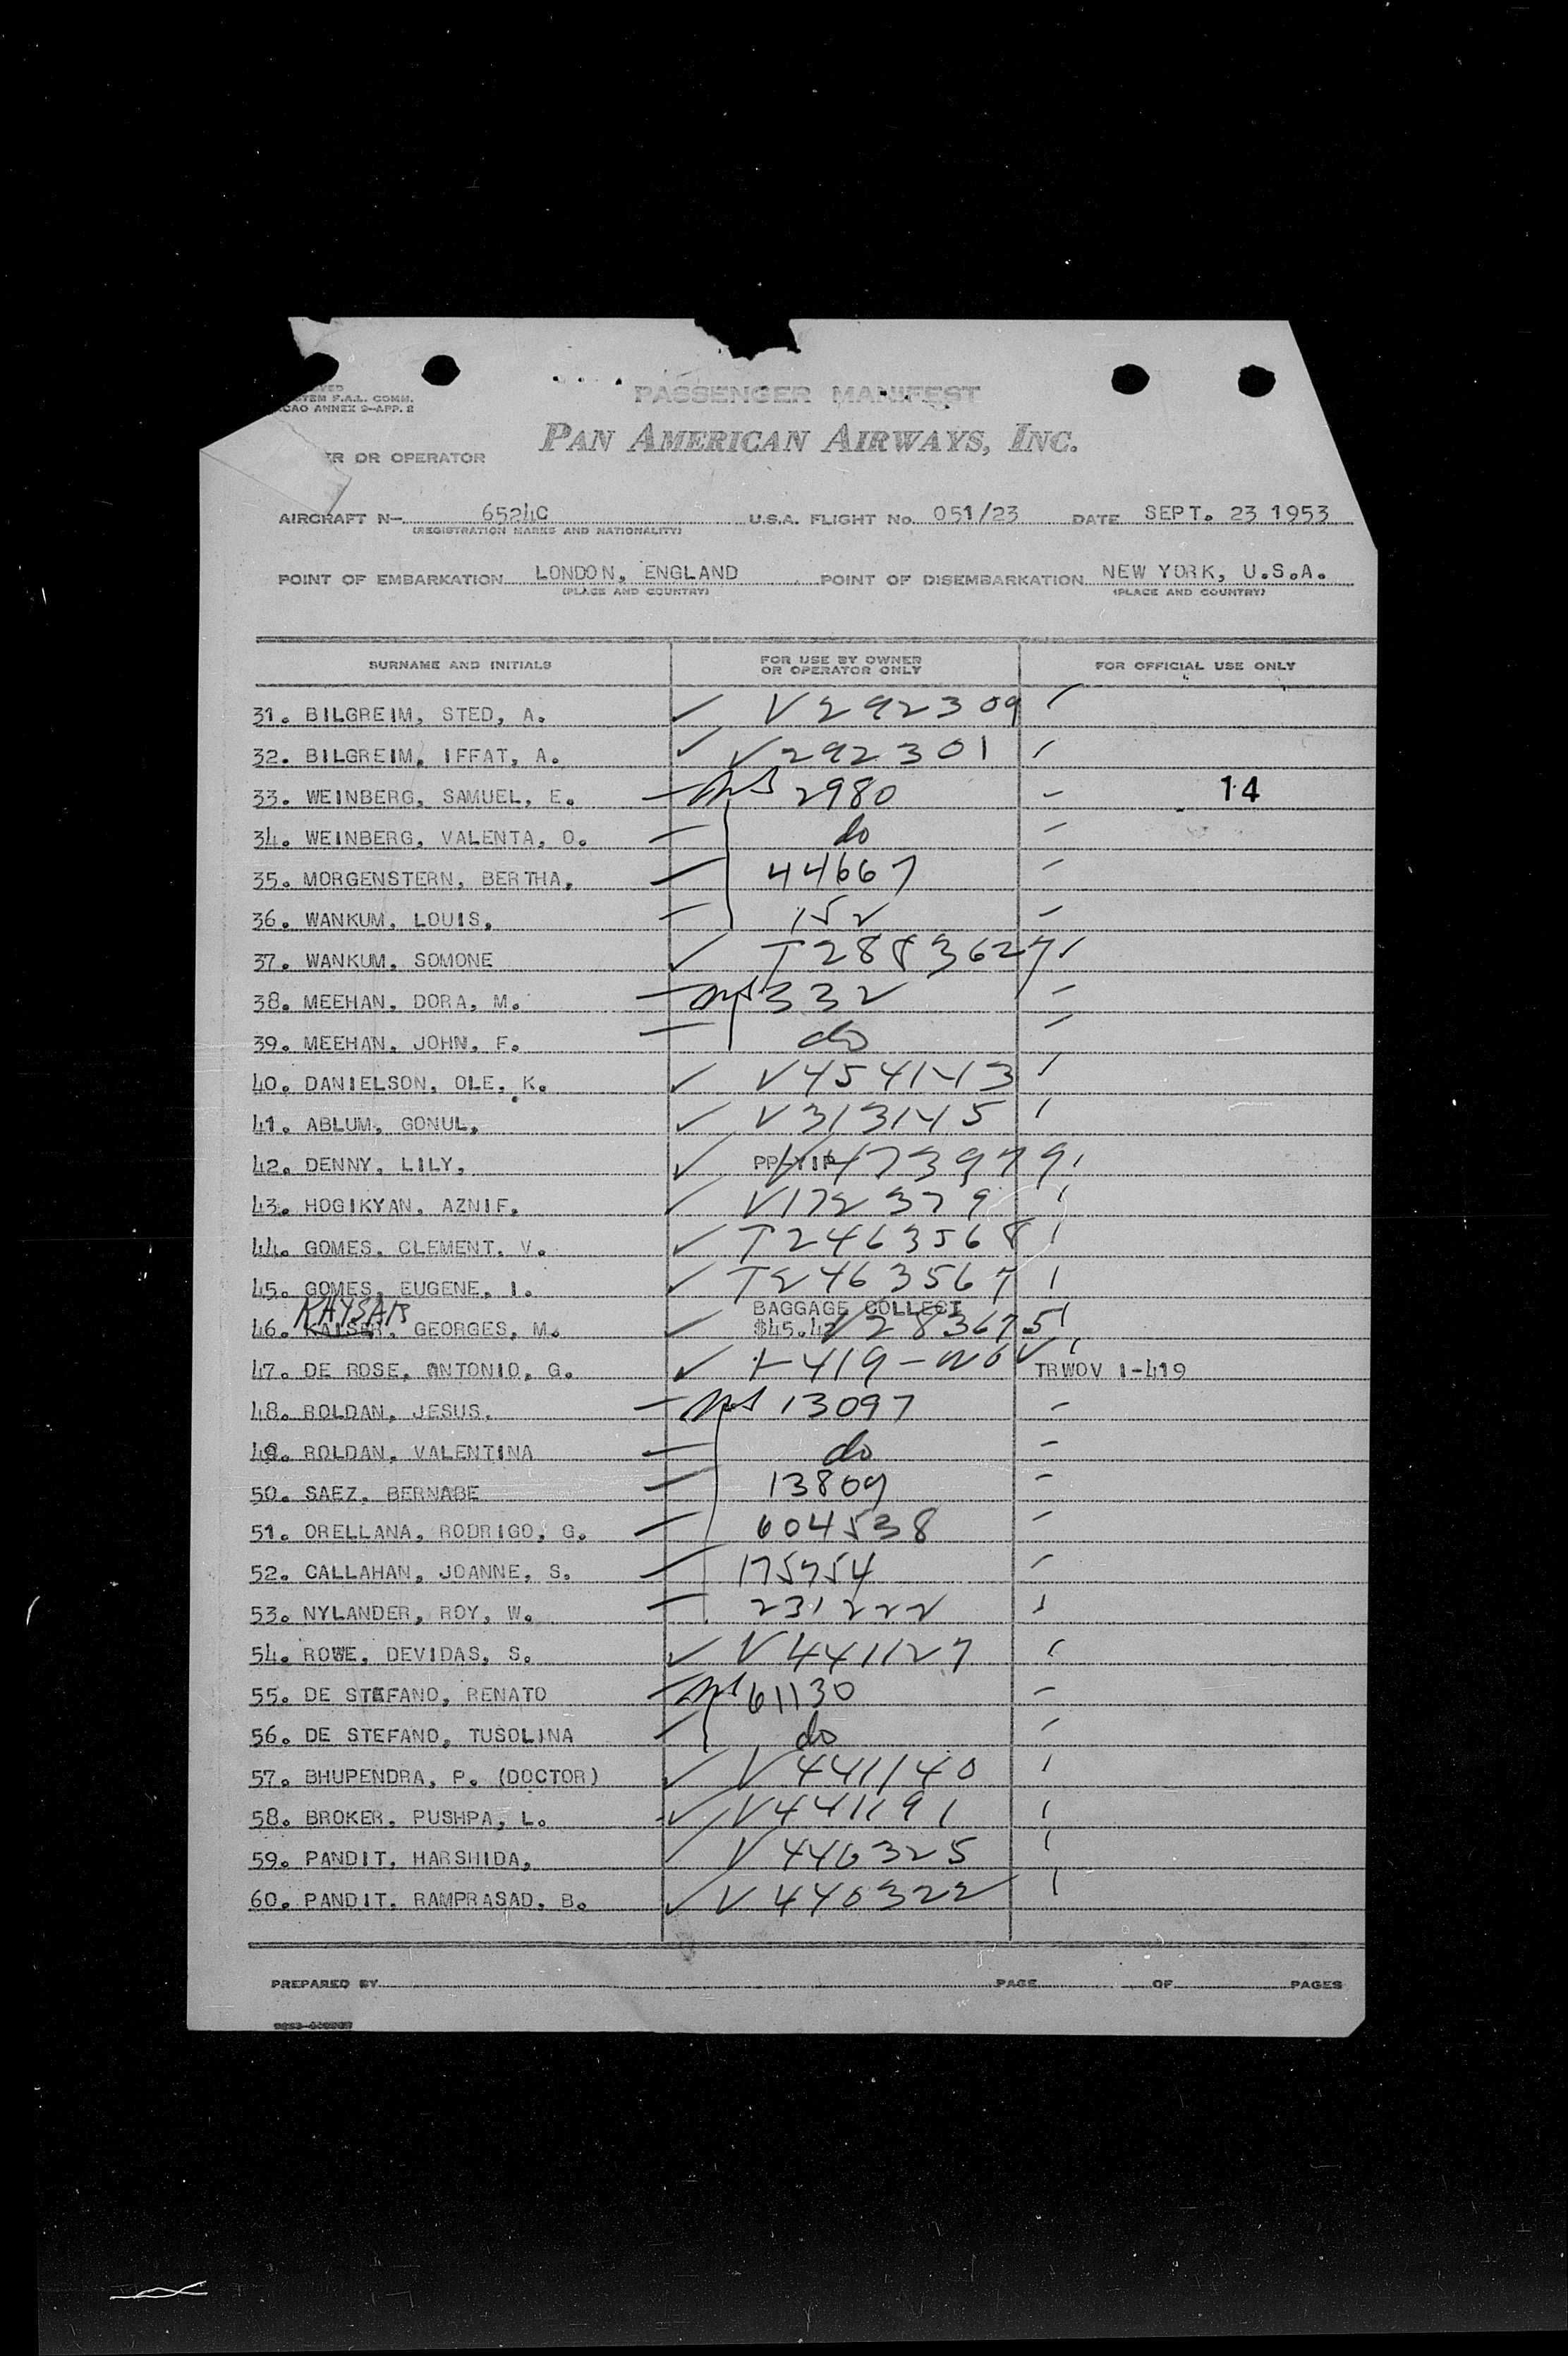 PASSENGER MANIFEST
F.A.L. COMM.
ANNEX 9-APP. 2
PAN AMERICAN AIRWAYS, INC.
OR OPERATOR
AIRCRAFT N- 6524C U.S.A. FLIGHT No. 051/23 DATE SEPT. 23 1953
(REGISTRATION MARKS AND NATIONALITY)
POINT OF EMBARKATION LONDON, ENGLAND POINT OF DISEMBARKATION NEW YORK, U.S.A.
(PLACE AND COUNTRY) (PLACE AND COUNTRY)
SURNAME AND INITIALS FOR USE BY OWNER OR OPERATOR ONLY FOR OFFICIAL USE ONLY
31. BILGREIM, STED, A. V292309
32. BILGREIM, IFFAT, A. V292301
33. WEINBERG, SAMUEL, E. 2980 14
34. WEINBERG, VALENTA, O. do
35. MORGENSTERN, BERTHA, 44667
36. WANKUM, LOUIS, 152
37. WANKUM, SOMONE T2883627
38. MEEHAN, DORA, M. 332
39. MEEHAN, JOHN, F. do
40. DANIELSON, OLE, K. V454143
41. ABLUM, GONUL, V313145
42. DENNY, LILY, V4739779
43. HOGIKYAN, AZNIF, V172379
44. GOMES, CLEMENT, V. T2463568
45. GOMES, EUGENE, I. T2463567
KAYSAR BAGGAGE COLLECT
46. KAISER, GEORGES, M. $45.42 V283675
47. DE ROSE, ANTONIO, G. 1-419-WOV TRWOV 1-419
48. ROLDAN, JESUS, 13097
49. ROLDAN, VALENTINA do
50. SAEZ, BERNABE 13809
51. ORELLANA, RODRIGO, G. 604538
52. CALLAHAN, JOANNE, S. 175754
53. NYLANDER, ROY, W. 231222
54. ROWE, DEVIDAS, S. V441127
55. DE STEFANO, RENATO 61130
56. DE STEFANO, TUSOLINA do
57. BHUPENDRA, P. (DOCTOR) V441140
58. BROKER, PUSHPA, L. V441191
59. PANDIT, HARSHIDA, V440325
60. PANDIT, RAMPRASAD, B. V440322
PREPARED BY PAGE OF PAGES